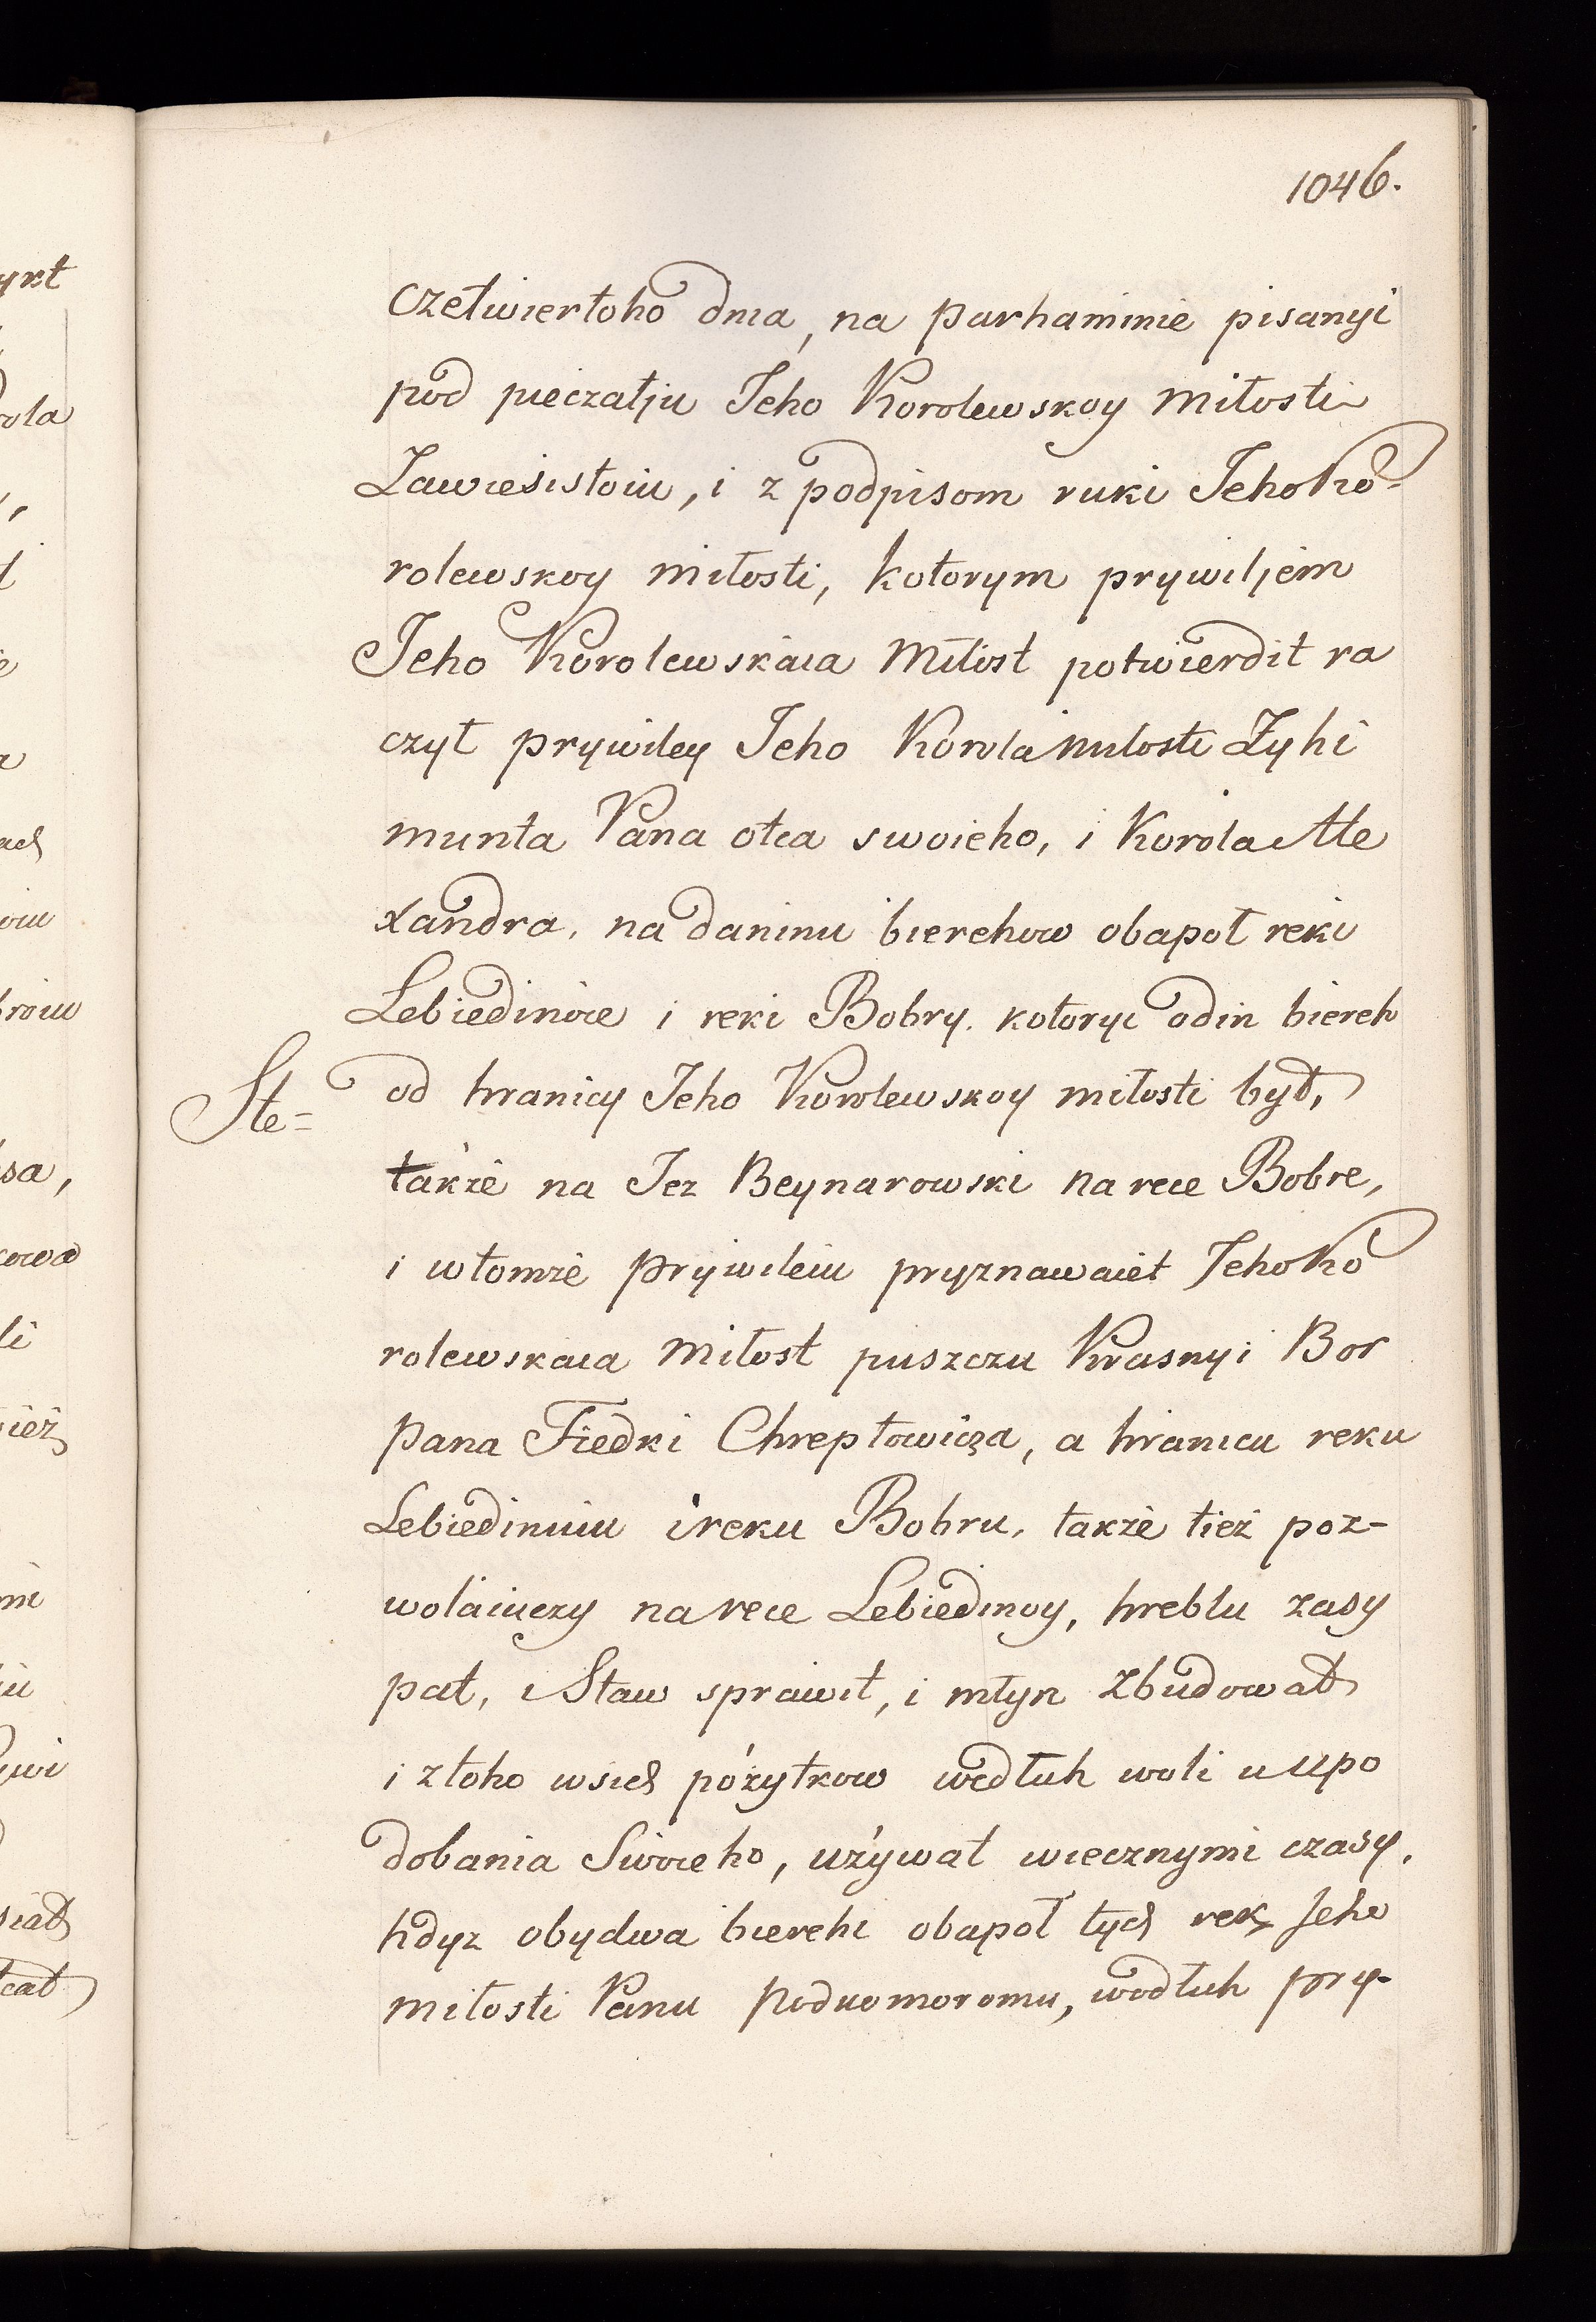 1046.
czetwiertoho dnia, na parhaminie pisanyi
pod pieczatju Jeho Korolewskoy miłosti
Zawiesistoiu, i z podpisom ruki Jeho Ko-
rolewskoy miłosti, kotorym prywiljem
Jeho Korolewskaia Miłost potwierdit ra
czył prywiley Jeho Korola milosti Zyhi
munta Pana otca swoieho, i Korola Ale
xandra, na daninu bierehow obapoł reki
Lebiedinoie i reki Bobry. kotoryi odin biereh
od hranicy Jeho Korolewskoy miłosti był,
Ste=
także na Jez Beynarowski na rece Bobre,
i wtomże prywileiu pryznawaiet Jeho Ko
rolewskaia Miłost puszczu Krasnyi Bor
Pana Fiedki Chreptowicza, a hranicu reku
Lebiedinuiu i reku Bobru, także tież poz-
wolaiuczy na rece Lebiedinoy, hreblu zasy
pat, i Staw sprawit, i młyn zbudowat
i ztoho wsich pożytkow wedłuh woli u upo
dobania Swoieho, używat wiecznymi czasy,
hdyz obydwa bierehi obapoł tych rek Jeho
miłosti Panu Podkomoromu, wodłuh pry-